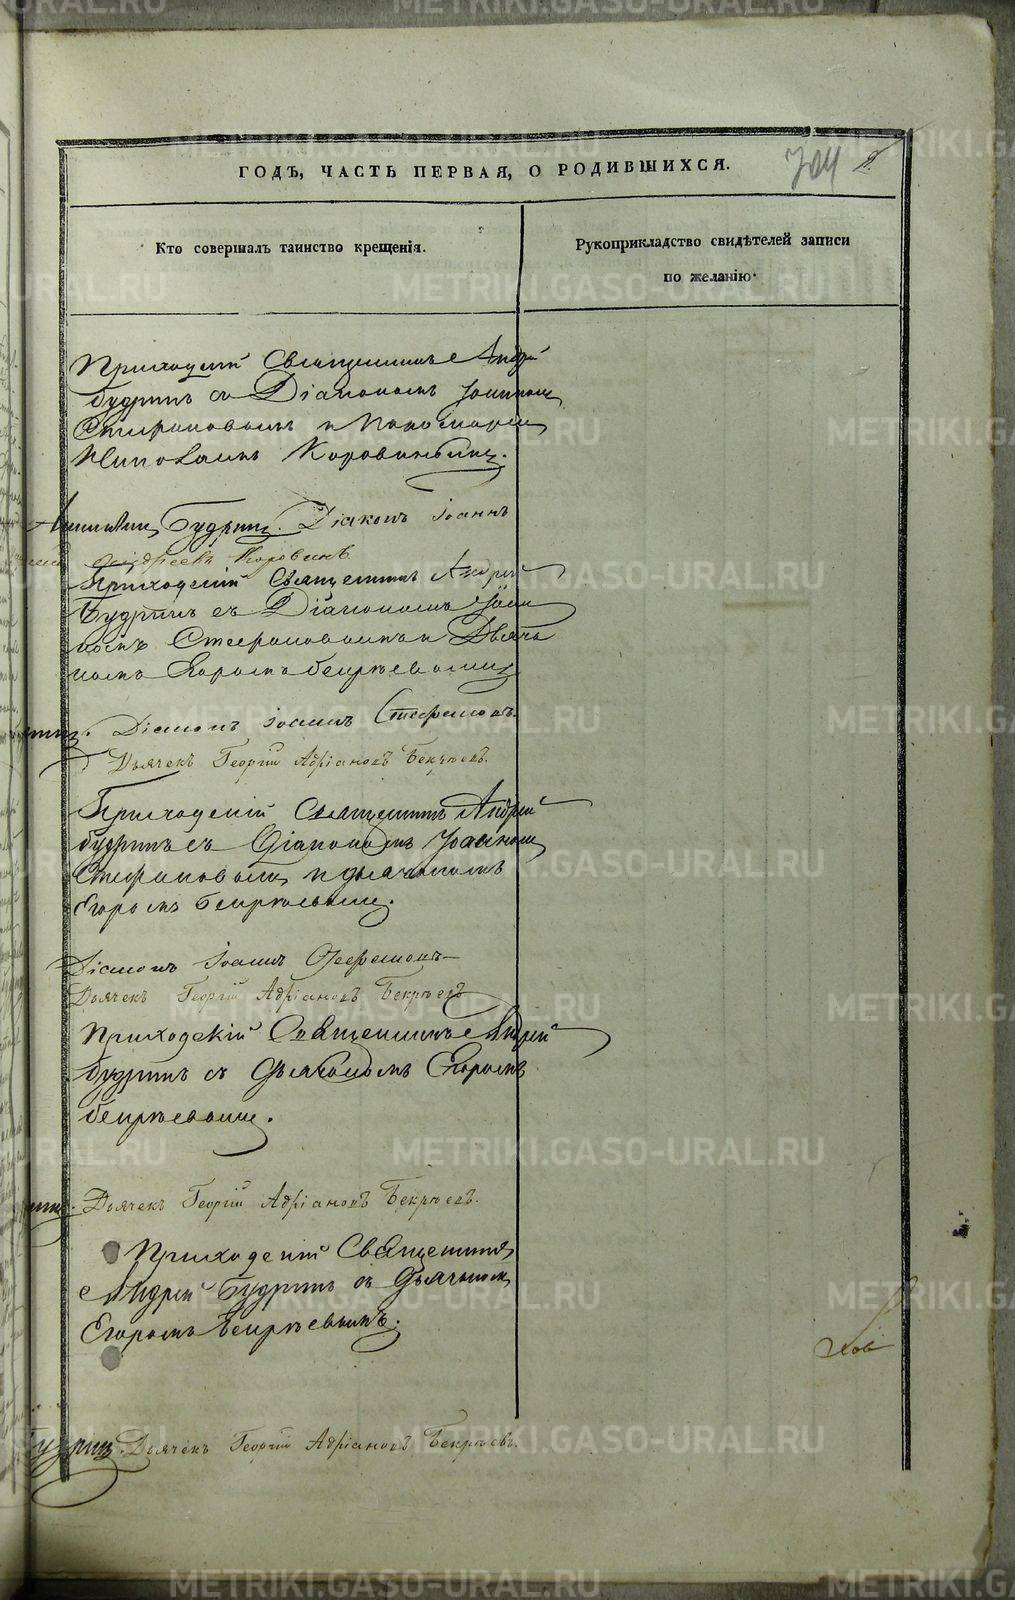 ГОДЪ, ЧАСТЬ ПЕРВАЯ, О РОДИВШИХСЯ.
704
Кто совершалъ таинство крещенія.
Рукоприкладство свидѣтелей записи
по желанію.
Приходскій Священникъ Андрей
Будринъ съ Діакономъ Іоанномъ
Стефановымъ и Пономаремъ
Николаемъ Коровинымъ.
Будринъ. Діаконъ Іоаннъ
Андреевъ Коровинъ
Приходскій Священникъ Андрей
Будринъ съ Діакономъ Іоан
номъ Стефановымъ и Дьячь
комъ Егоромъ Бекрѣевымъ
Діаконъ Іоаннъ Стефановъ.
Дьячекъ Георгій Адріановъ Бекрѣевъ.
Приходскій Священникъ Андрей
Будринъ съ Діакономъ Іоанномъ
Стефановымъ и дьячькомъ
Егоромъ Бекрѣевымъ.
Діаконъ Іоаннъ Стефановъ
Дьячекъ Георгій Адріановъ Бекрѣевъ
Приходскій Священникъ Андрей
Будринъ съ Дьячькомъ Егоромъ
Бекрѣевымъ.
Дьячекъ Георгій Адріановъ Бекрѣевъ.
Приходскій Священникъ
Андрей Будринъ съ Дьячькомъ
Егоромъ Бекрѣевымъ.
Будринъ. Дьячекъ Георгій Адріановъ Бекрѣевъ.
METRIKI.GASO-URAL.RU